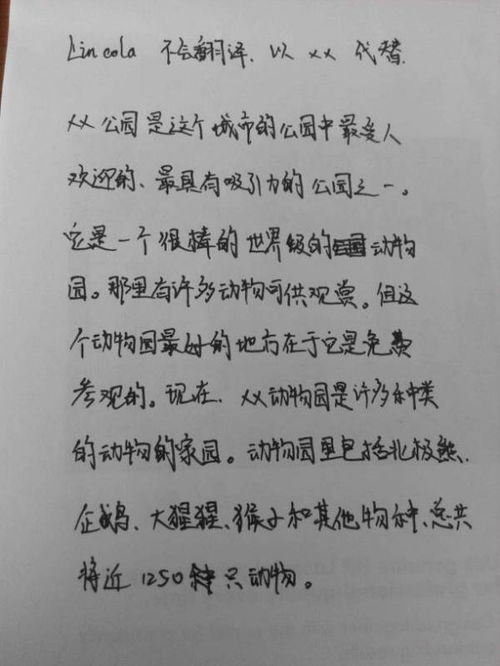 Lincola 不会翻译. 以 xx 代替.
xx 公园是这个城市的公园中最受人
欢迎的、最具有吸引力的公园之一。
它是一个很棒的世界级的动物
园。那里有许多动物可供观赏。但这
个动物园最好的地方在于它是免费
参观的。现在. xx动物园是许多种类
的动物的家园。动物园里包括北极熊.
企鹅、大猩猩、猴子和其他物种、总共
将近 1250 只动物。